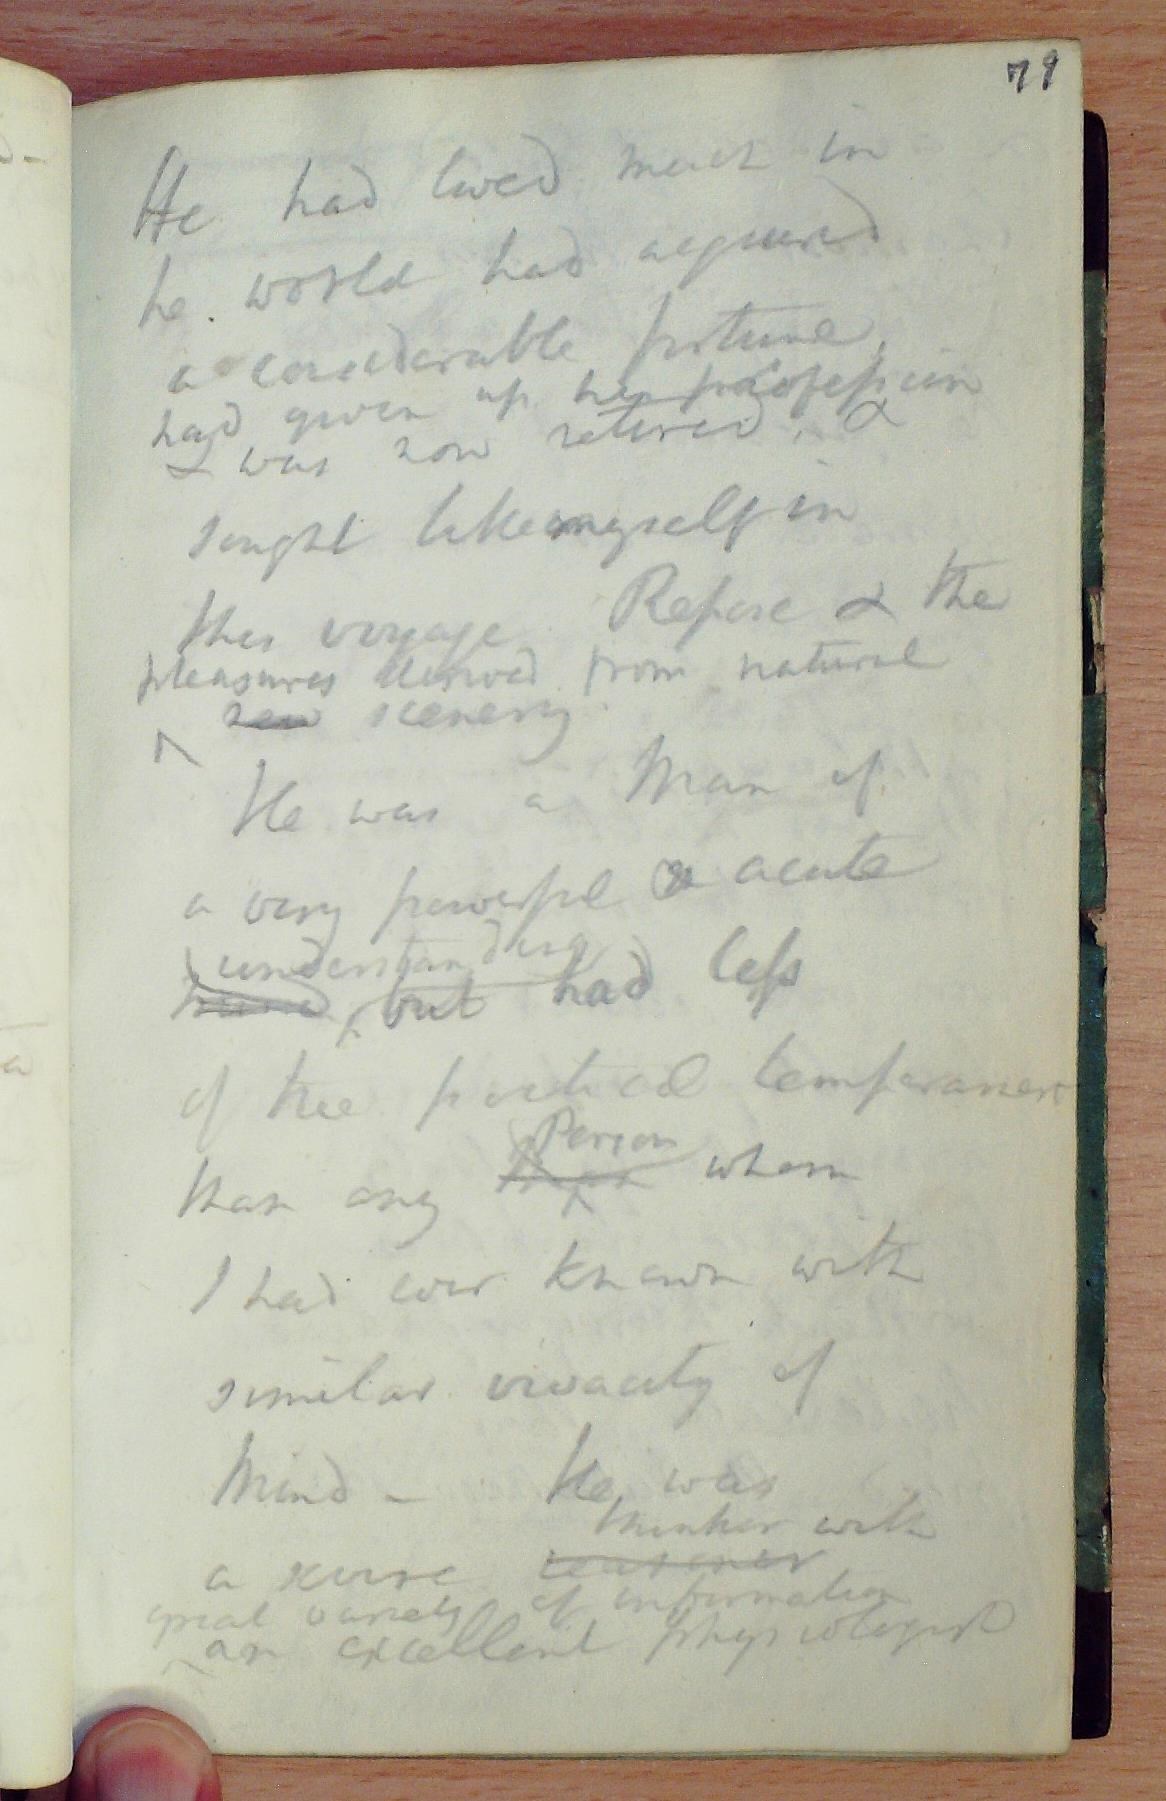 79
He had lived much in
he world had acquired
a considerable fortune,
had given up his profession
& was now retired, &
sought like myself in
this voyage Repose & the
pleasures derived from natural
new scenery.
He was a Man of
a very powerful & acute
understanding
mind, but had less
of the poetical temperament
Person
than any man whom
I had ever known with
similar vivacity of
Mind - He was
thinker with
a severe reasoner
great variety of information
an excellent physiologist